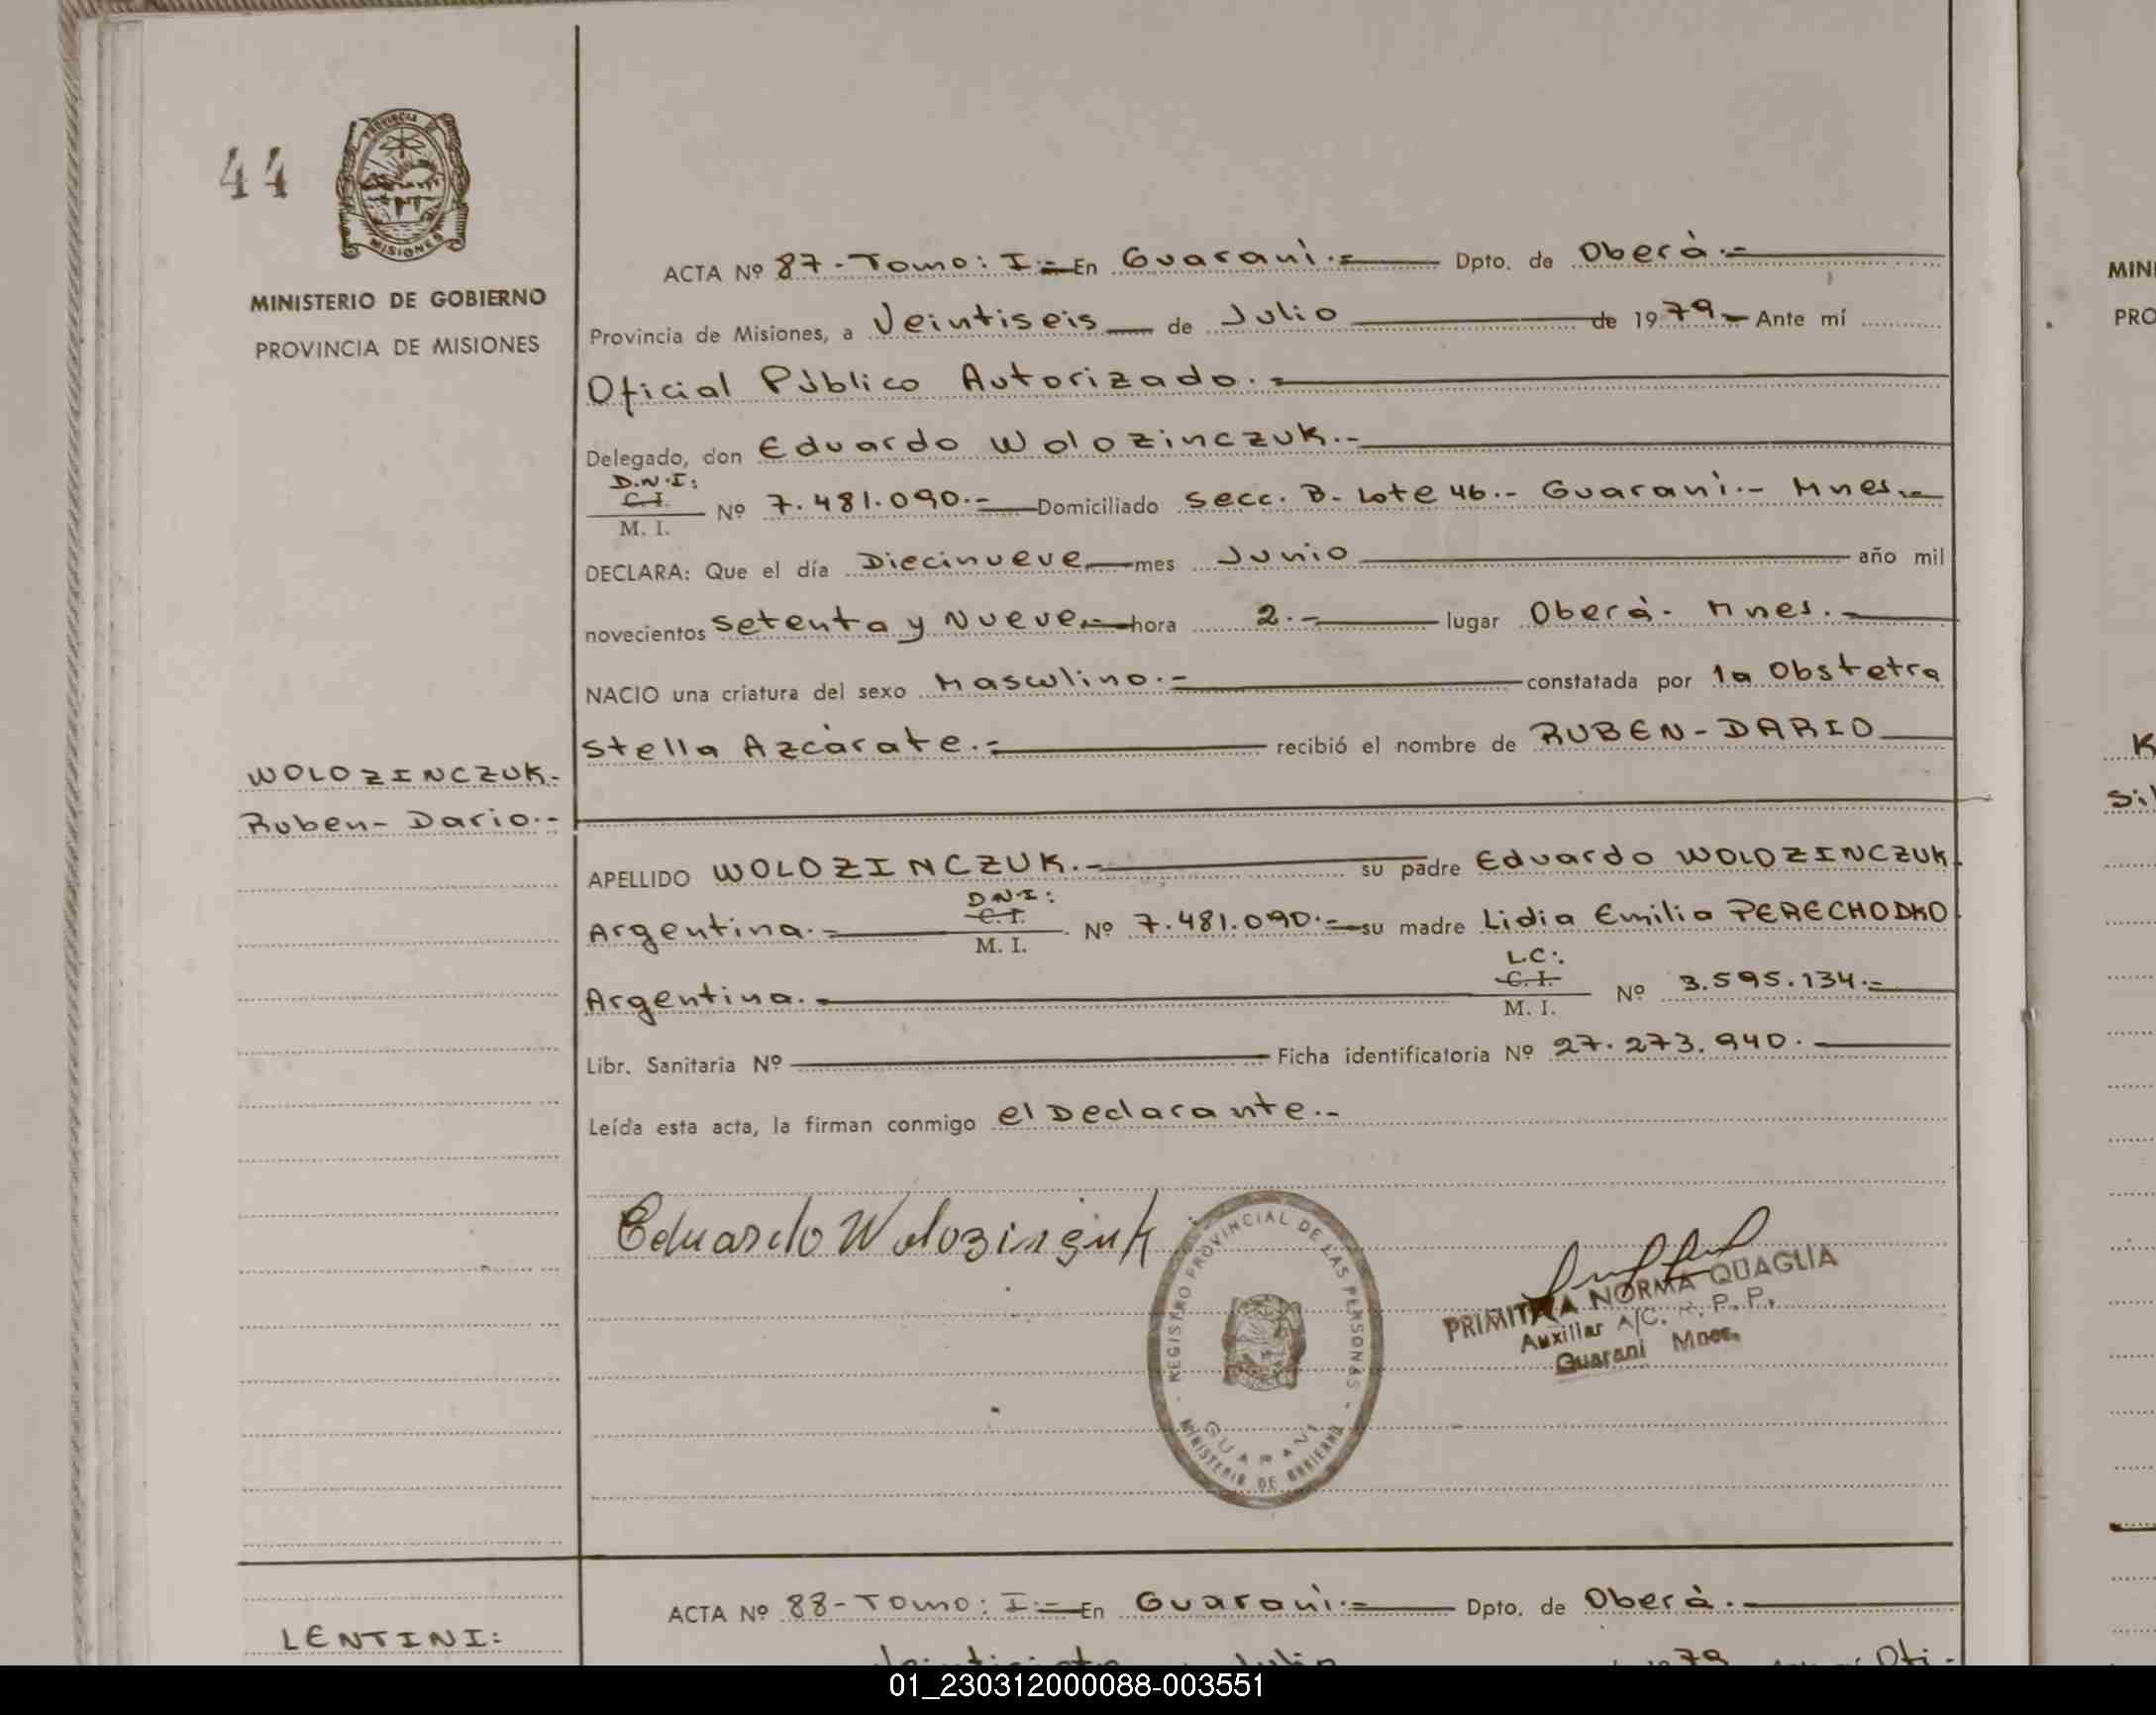 44
PROVINCIA DE
MISIONES
MINISTERIO DE GOBIERNO
PROVINCIA DE MISIONES
ACTA Nº 87.-Tomo: I.- En Guaraní.- Dpto. de Oberá.-
Provincia de Misiones, a Veintiseis de Julio de 1979.- Ante mí
Oficial Público Autorizado.-
Delegado, don Eduardo Wolozinczuk.-
D.N.I:
C.I.
M. I. Nº 7.481.090.- Domiciliado Secc. B- Lote 46.- Guaraní.- Mnes.-
DECLARA: Que el día Diecinueve mes Junio año mil
novecientos setenta y Nueve.- hora 2.- lugar Oberá- Mnes.-
NACIO una criatura del sexo Masculino.- constatada por la Obstetra
Stella Azcárate.- recibió el nombre de RUBEN-DARIO
WOLOZINCZUK.
Ruben-Dario.-
APELLIDO WOLOZINCZUK.- su padre Eduardo WOLOZINCZUK
D.N.I:
C.I.
Argentina.- M. I. Nº 7.481.090.- su madre Lidia Emilia PERECHODKO
L.C:
C.I.
Argentina.- M. I. Nº 3.595.134.-
Libr. Sanitaria Nº Ficha identificatoria Nº 27.273.940.
Leída esta acta, la firman conmigo el Declarante.-
Eduardo Wolozinzuk
REGISTRO PROVINCIAL DE LAS PERSONAS
GUARANI
MINISTERIO DE GOBIERNO
PRIMITIVA NORMA QUAGLIA
Auxiliar A/C. R. P. P.
Guarani Mnes.
ACTA Nº 88-Tomo: I.- En Guaraní.- Dpto. de Oberá.-
LENTINI:
Julio 1979
MINI
PRO
K
Sil
01_230312000088-003551